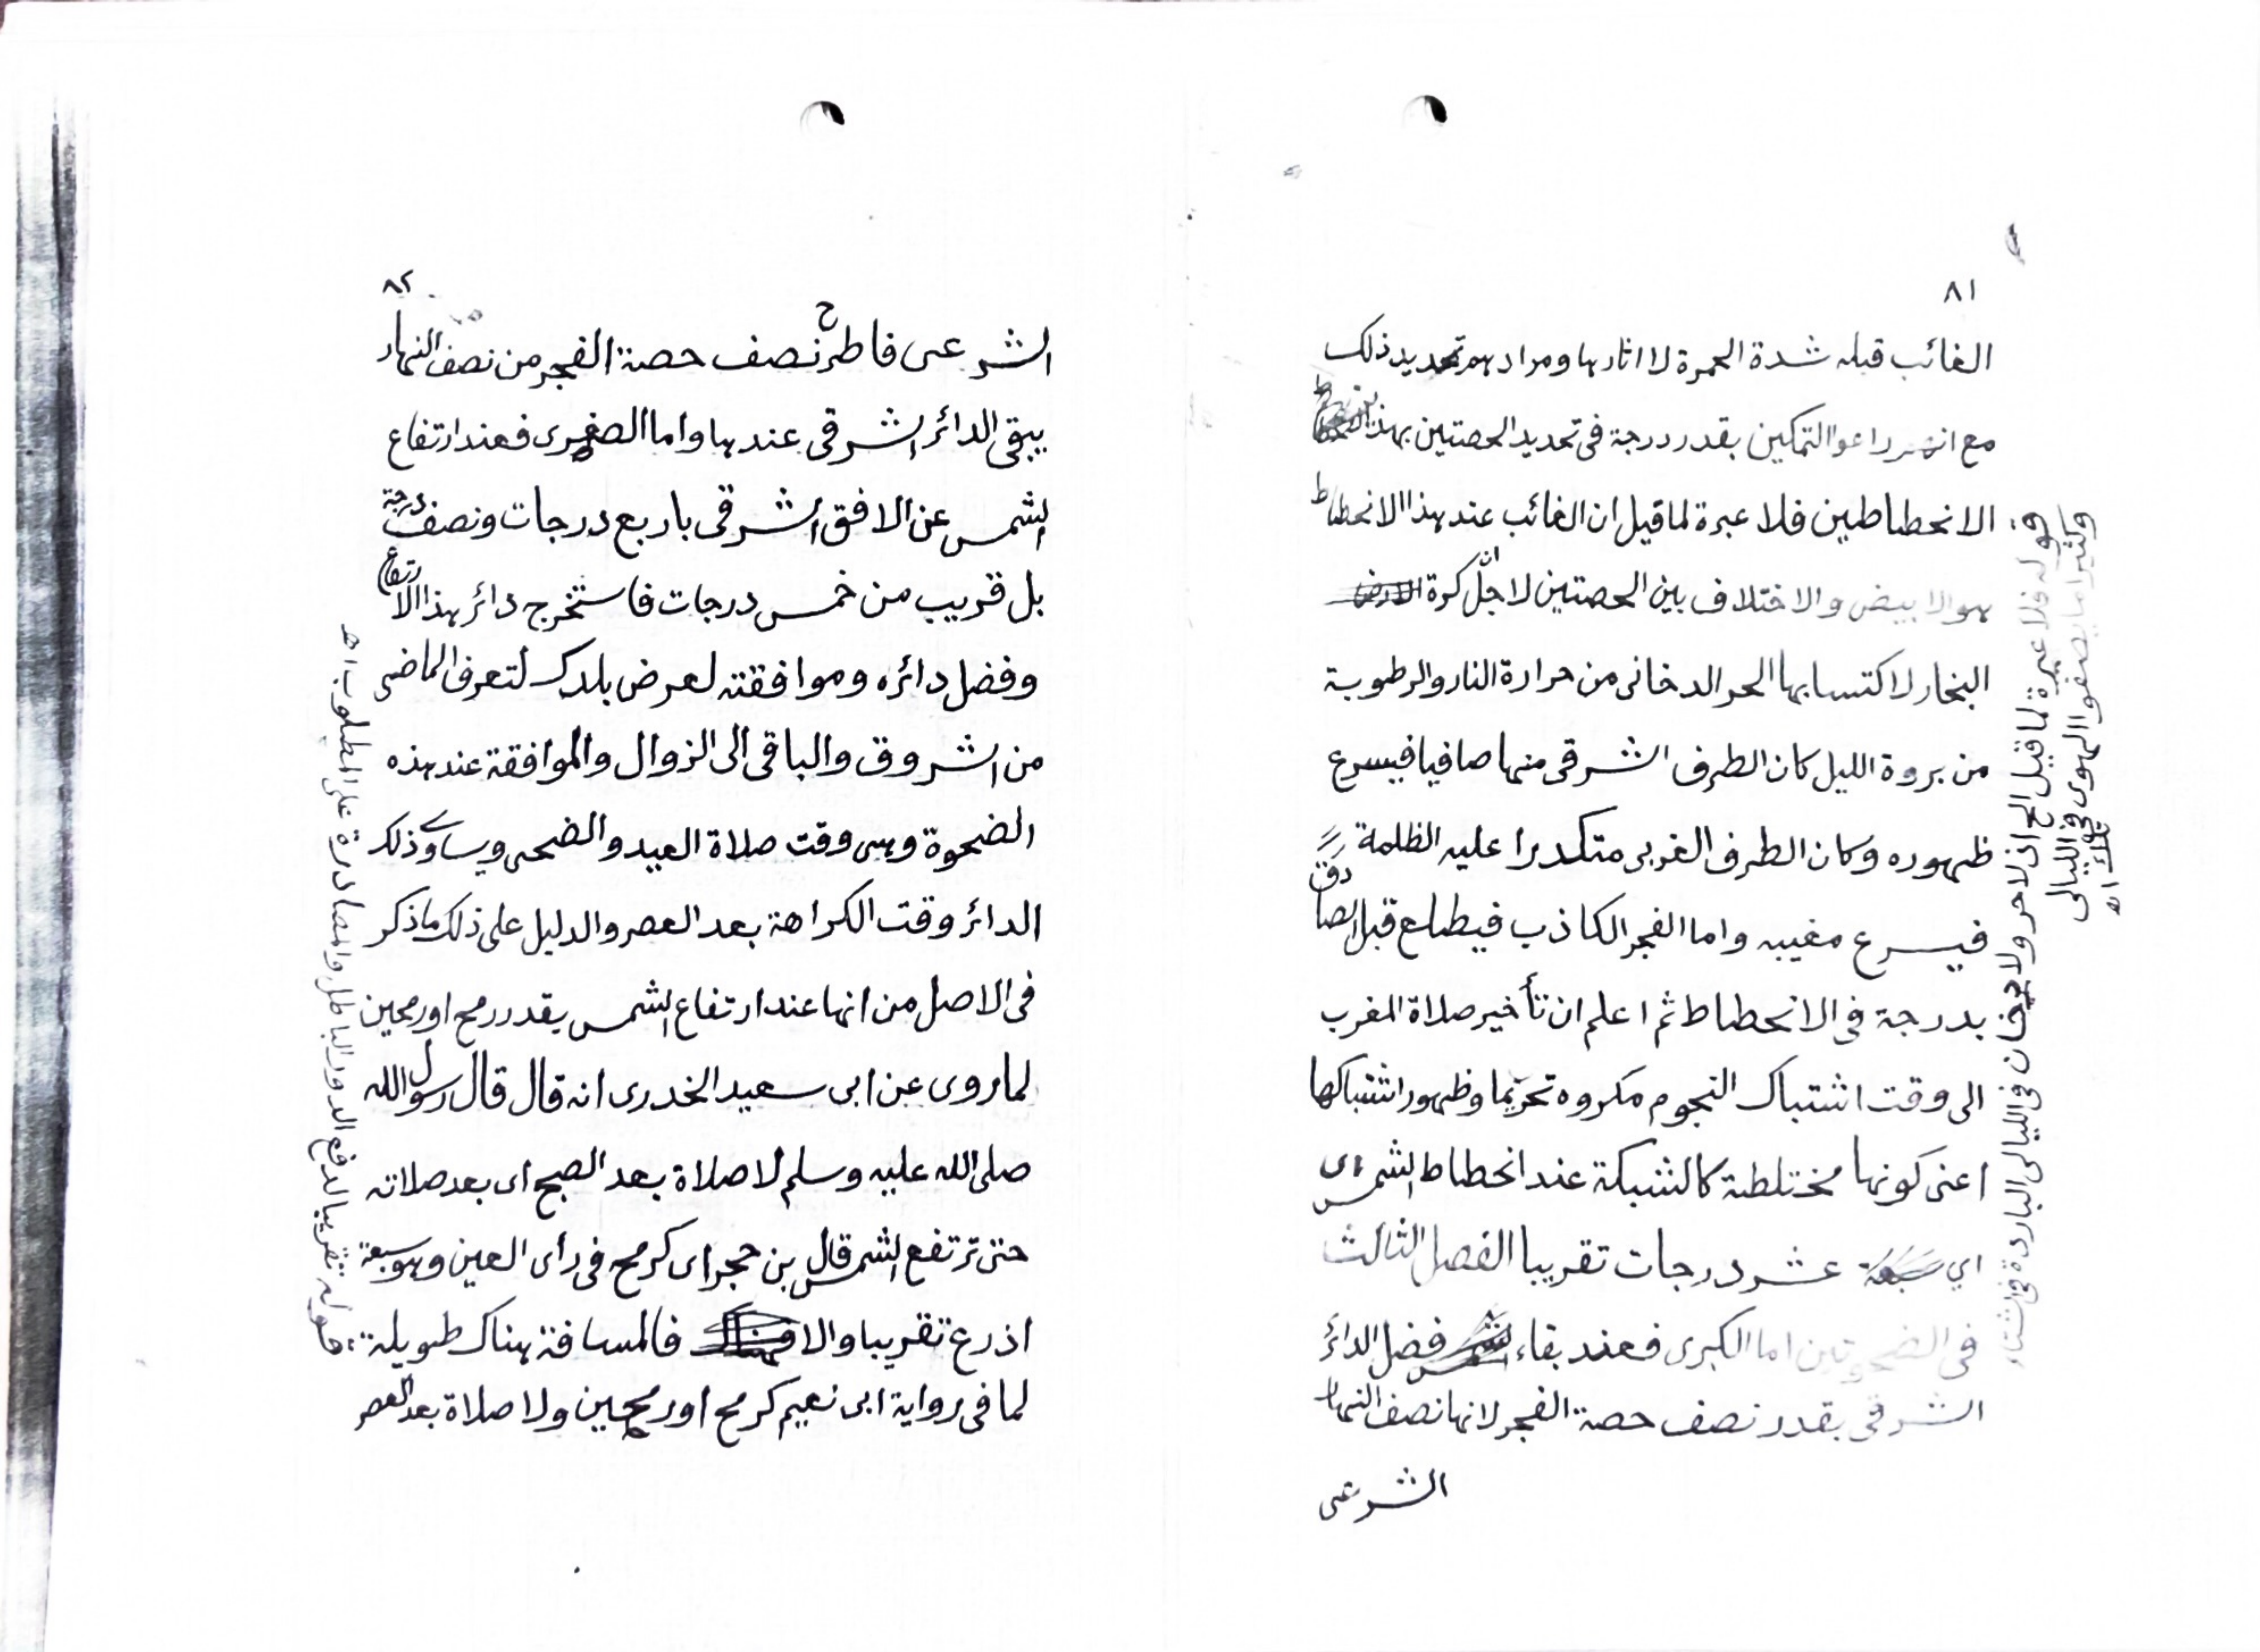 ٨١
الغائب قبله شدة الحمرة لا اثارها ومرادهم تحديد ذلك
مع انهم راعوا التمكين بقدر درجة فى تحديد الحصتين بهذا
الانحطاطين فلا عبرة لما قيل ان الغائب عند هذا الانحطاط
هو الابيض والاختلاف بين الحصتين لاجل ان كرة
البخار لاكتسابها الحر الدخانى من حرارة النار والرطوبة
من برودة الليل كان الطرف الشرقى منها صافيا فيسرع
ظهوره وكان الطرف الغربى متكدرا عليه الظلمة
فيسرع مغيبه واما الفجر الكاذب فيطلع قبل الصادق
بدرجة فى الانحطاط ثم اعلم ان تأخير صلاة المغرب
الى وقت اشتباك النجوم مكروه تحريما وظهور اشتباكها
اعنى كونها مختلطة كالشبكة عند انحطاط الشمس
اي عشر درجات تقريبا الفصل الثالث
فى الضحوتين اما الكبرى فعند بقاء فضل الدائر
الشرقى بقدر نصف حصة الفجر لانها نصف النهار
الشرعى
قوله فلا عبرة لما قيل الخ اذ لا حر ولا دخان فى الليالى الباردة فى الشتاء
وكثيرا ما يصفو الهوى فى الليالى
تلك اه
٨٢
الشرعى فاطرح نصف حصة الفجر من نصف النهار
يبقى الدائر الشرقى عندها واما الصغرى فعند ارتفاع
الشمس عن الافق الشرقى باربع درجات ونصف درجة
بل قريب من خمس درجات فاستخرج دائر هذا الارتفاع
وفضل دائره وموافقته لعرض بلدك لتعرف الماضى
من الشروق والباقى الى الزوال والموافقة عند هذه
الضحوة وهى وقت صلاة العيد والضحى ويساوى ذلك
الدائر وقت الكراهة بعد العصر والدليل على ذلك ما ذكر
فى الاصل من انها عند ارتفاع الشمس بقدر رمح او رمحين
لما روى عن ابى سعيد الخدرى انه قال قال رسول الله
صلى الله عليه وسلم لا صلاة بعد الصبح اى بعد صلاته
حتى ترتفع الشمس قال بن حجر اى كرمح فى رأى العين وهو سبعة
اذرع تقريبا والا فالمسافة هناك طويلة
لما فى رواية ابى نعيم كرمح او رمحين ولا صلاة بعد العصر
قوله تقريبا لدفع الدور الباطل والمصادرة على المطلوب اه